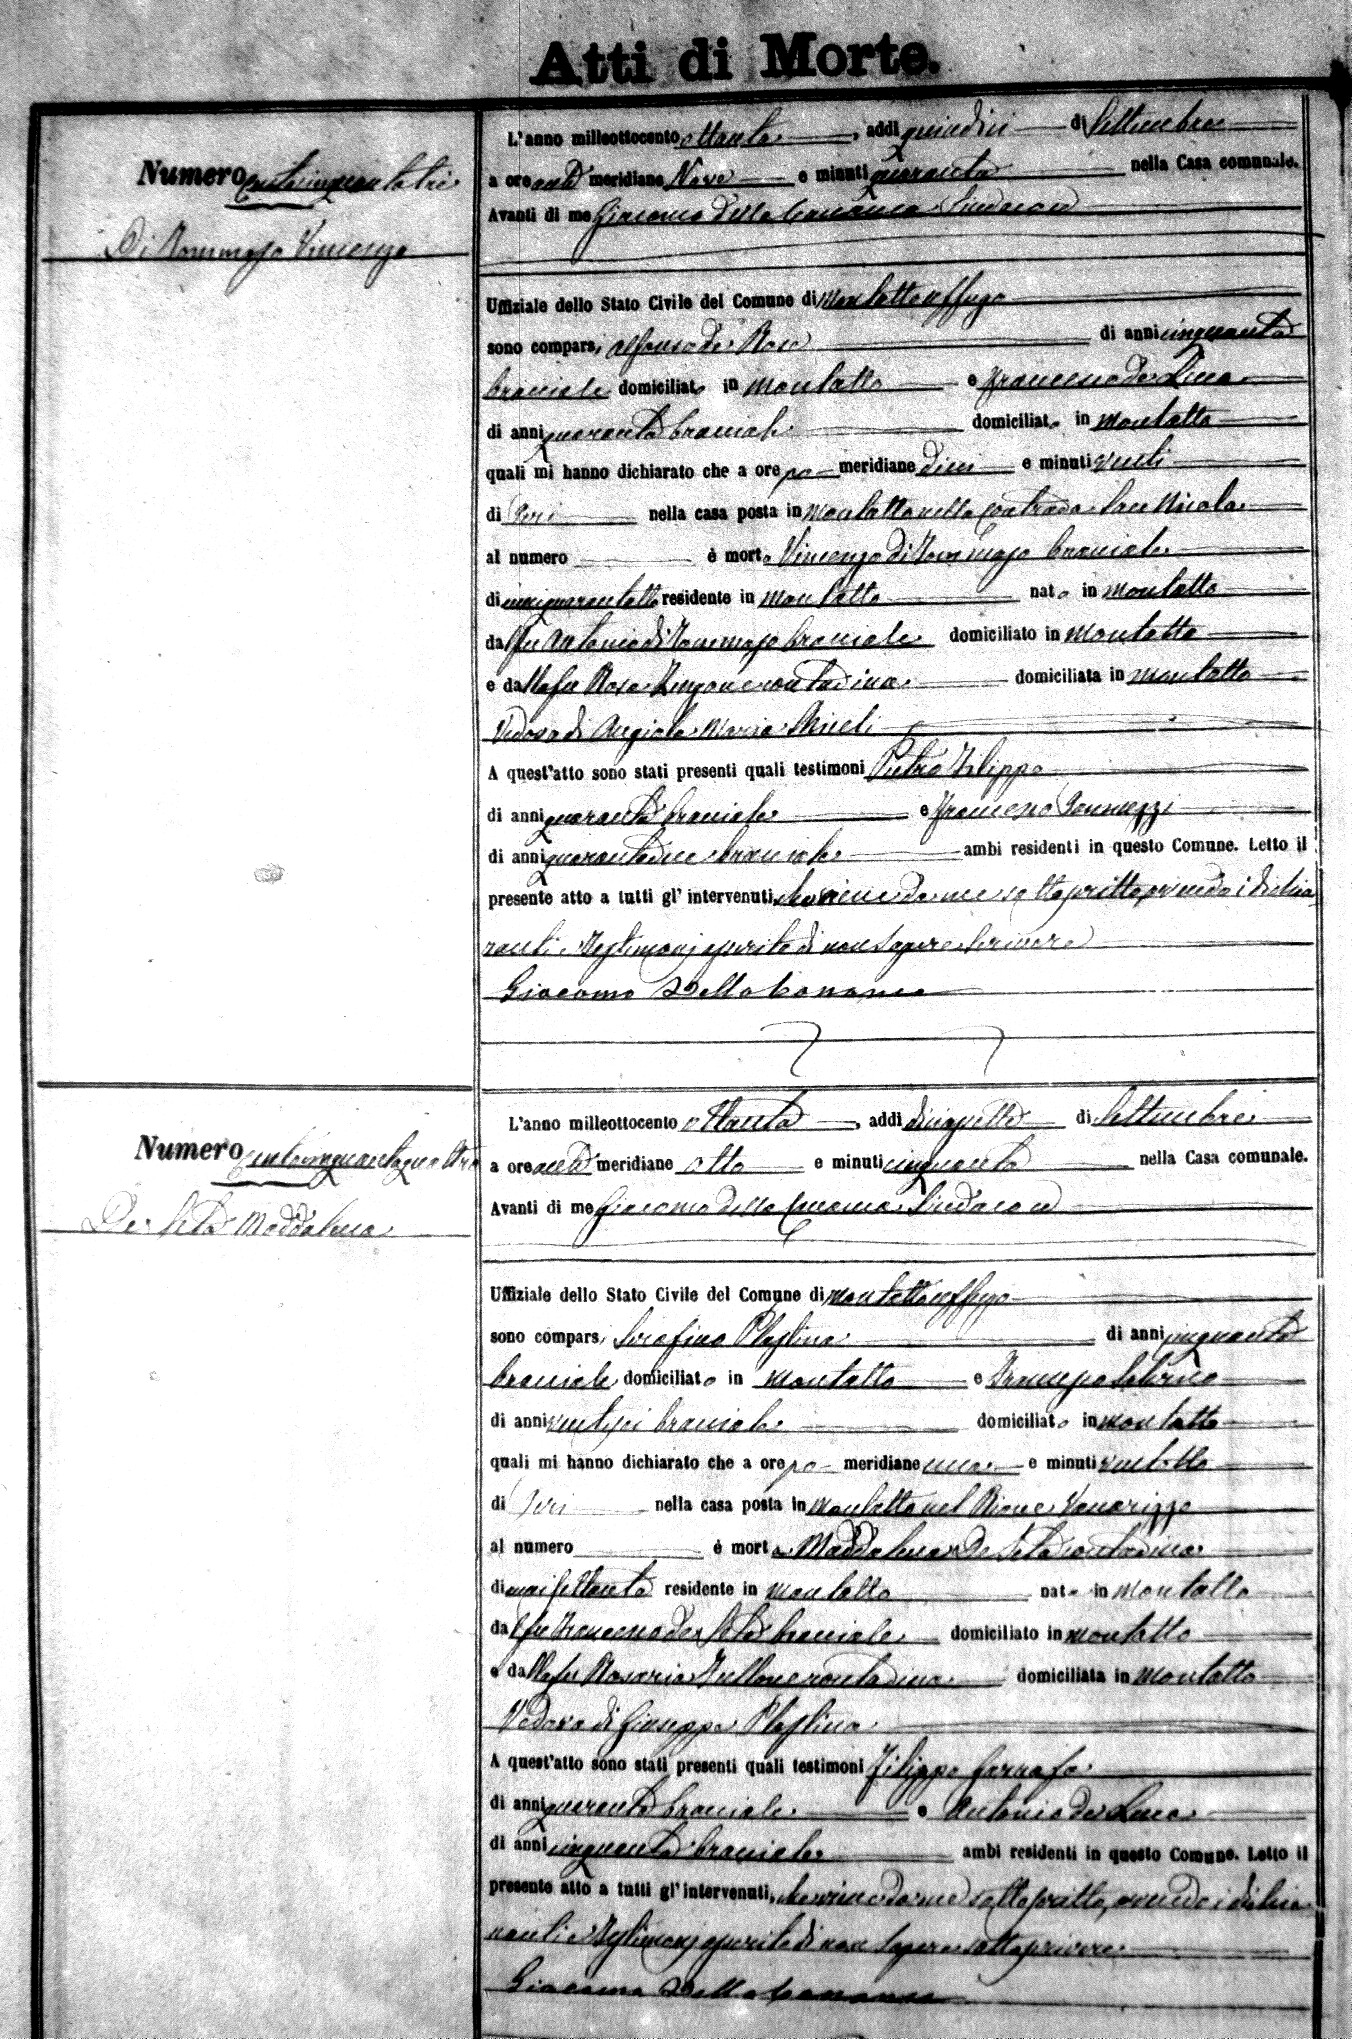 Atti di Morte.
Numero centocinquantatre
Di Tommaso Vincenzo
L'anno milleottocento ottanta, addì quindici di Settembre
a ore anti meridiane Nove e minuti quaranta nella Casa comunale.
Avanti di me Giacomo della Cananea Sindaco
Uffiziale dello Stato Civile del Comune di Montalto Uffugo
sono comparsi Alfonso de Rose di anni cinquanta
bracciale domiciliato in Montalto e Francesco de Luca
di anni quaranta bracciale domiciliato in Montalto
quali mi hanno dichiarato che a ore po meridiane dieci e minuti venti
di Jeri nella casa posta in Montalto nella contrada San Nicola
al numero è morto Vincenzo di Tommaso bracciale
di anni quarantotto residente in Montalto nato in Montalto
dal fu Antonio di Tommaso bracciale domiciliato in Montalto
e dalla fu Rosa contadina domiciliata in Montalto
Vedovo di Angiola Maria
A quest'atto sono stati presenti quali testimoni Pietro Filippo
di anni quaranta bracciale e Francesco
di anni quarantadue bracciale ambi residenti in questo Comune. Letto il
presente atto a tutti gl' intervenuti, che viene da me sottoscritto, avendo i dichia
ranti e Testimonj asserito di non sapere scrivere
Giacomo Della Cananea
Numero centocinquantaquattro
De Seta Maddalena
L'anno milleottocento ottanta, addì diciassette di Settembre
a ore anti meridiane otto e minuti cinquanta nella Casa comunale.
Avanti di me Giacomo della Cananea Sindaco
Uffiziale dello Stato Civile del Comune di Montalto Uffugo
sono comparsi Serafino Plastina di anni cinquanta
bracciale domiciliato in Montalto e Francesco
di anni ventisei bracciale domiciliato in Montalto
quali mi hanno dichiarato che a ore po meridiane una e minuti ventotto
di Jeri nella casa posta in Montalto nel Rione
al numero è morta Maddalena De Seta contadina
di anni settanta residente in Montalto nata in Montalto
dal fu Francesco de Seta bracciale domiciliato in Montalto
e dalla fu Rosaria contadina domiciliata in Montalto
Vedova di Giuseppe Plastina
A quest'atto sono stati presenti quali testimoni Filippo
di anni quaranta bracciale e Antonio de Luca
di anni cinquanta bracciale ambi residenti in questo Comune. Letto il
presente atto a tutti gl' intervenuti, che viene da me sottoscritto, avendo i dichia
ranti e Testimonj asserito di non sapere sottoscrivere
Giacomo Della Cananea